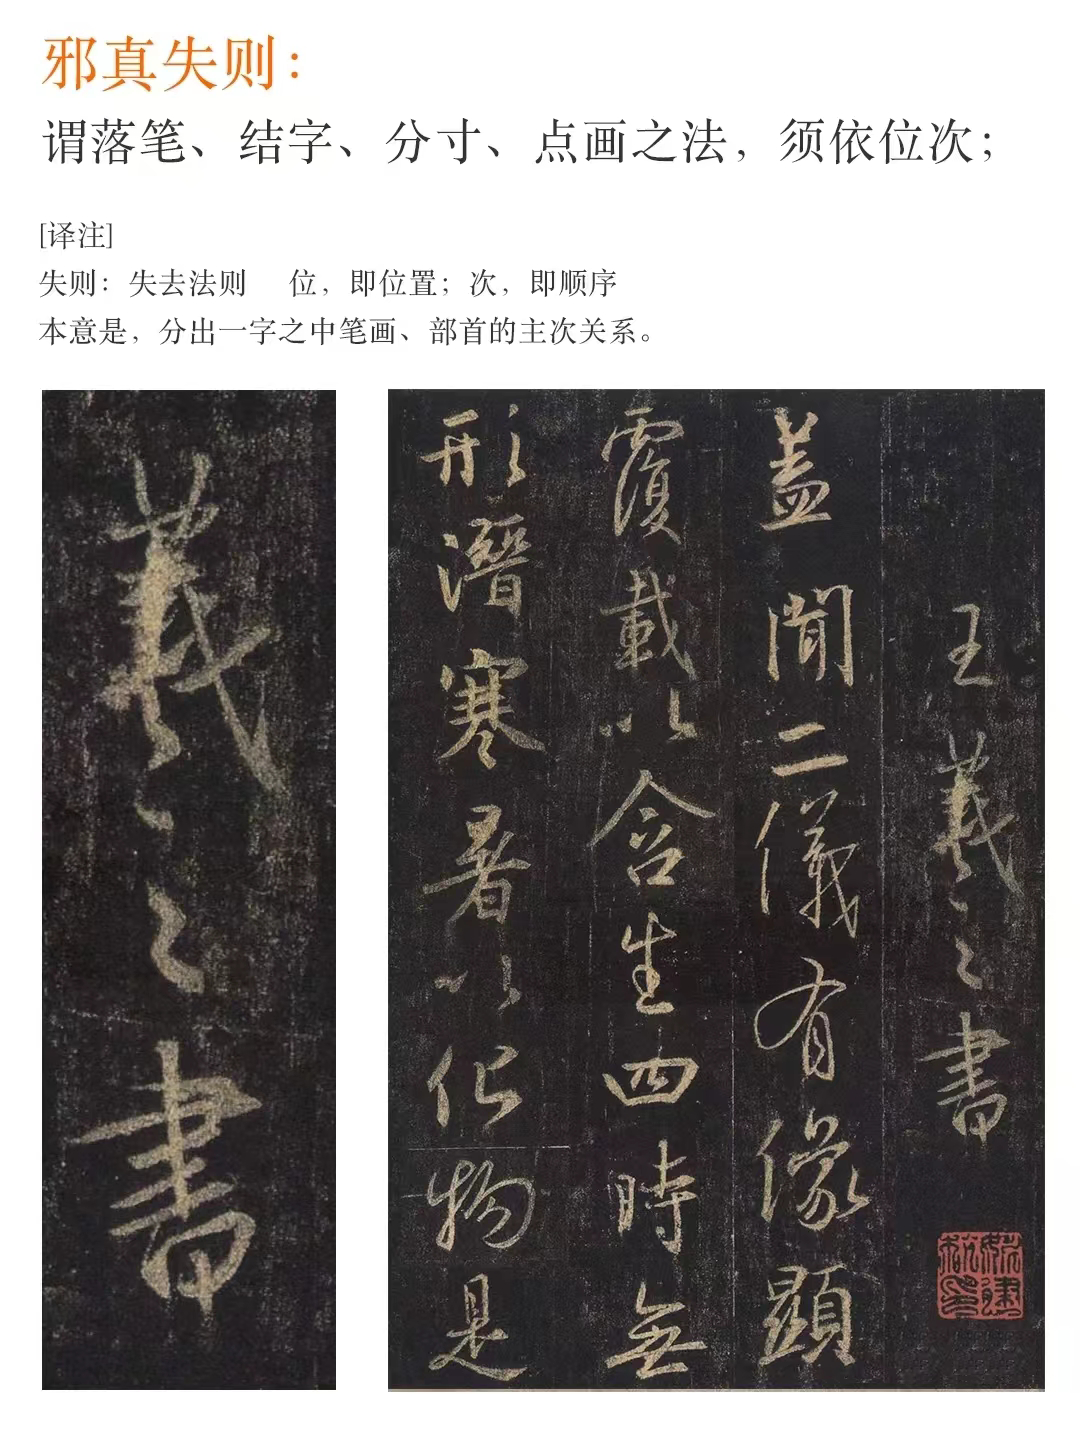 邪真失则：
谓落笔、结字、分寸、点画之法，须依位次；
[译注]
失则：失去法则　位，即位置；次，即顺序
本意是，分出一字之中笔画、部首的主次关系。
羲之书
王羲之書
盖聞二儀有像顯
覆載以含生四時無
形潛寒暑以化物是